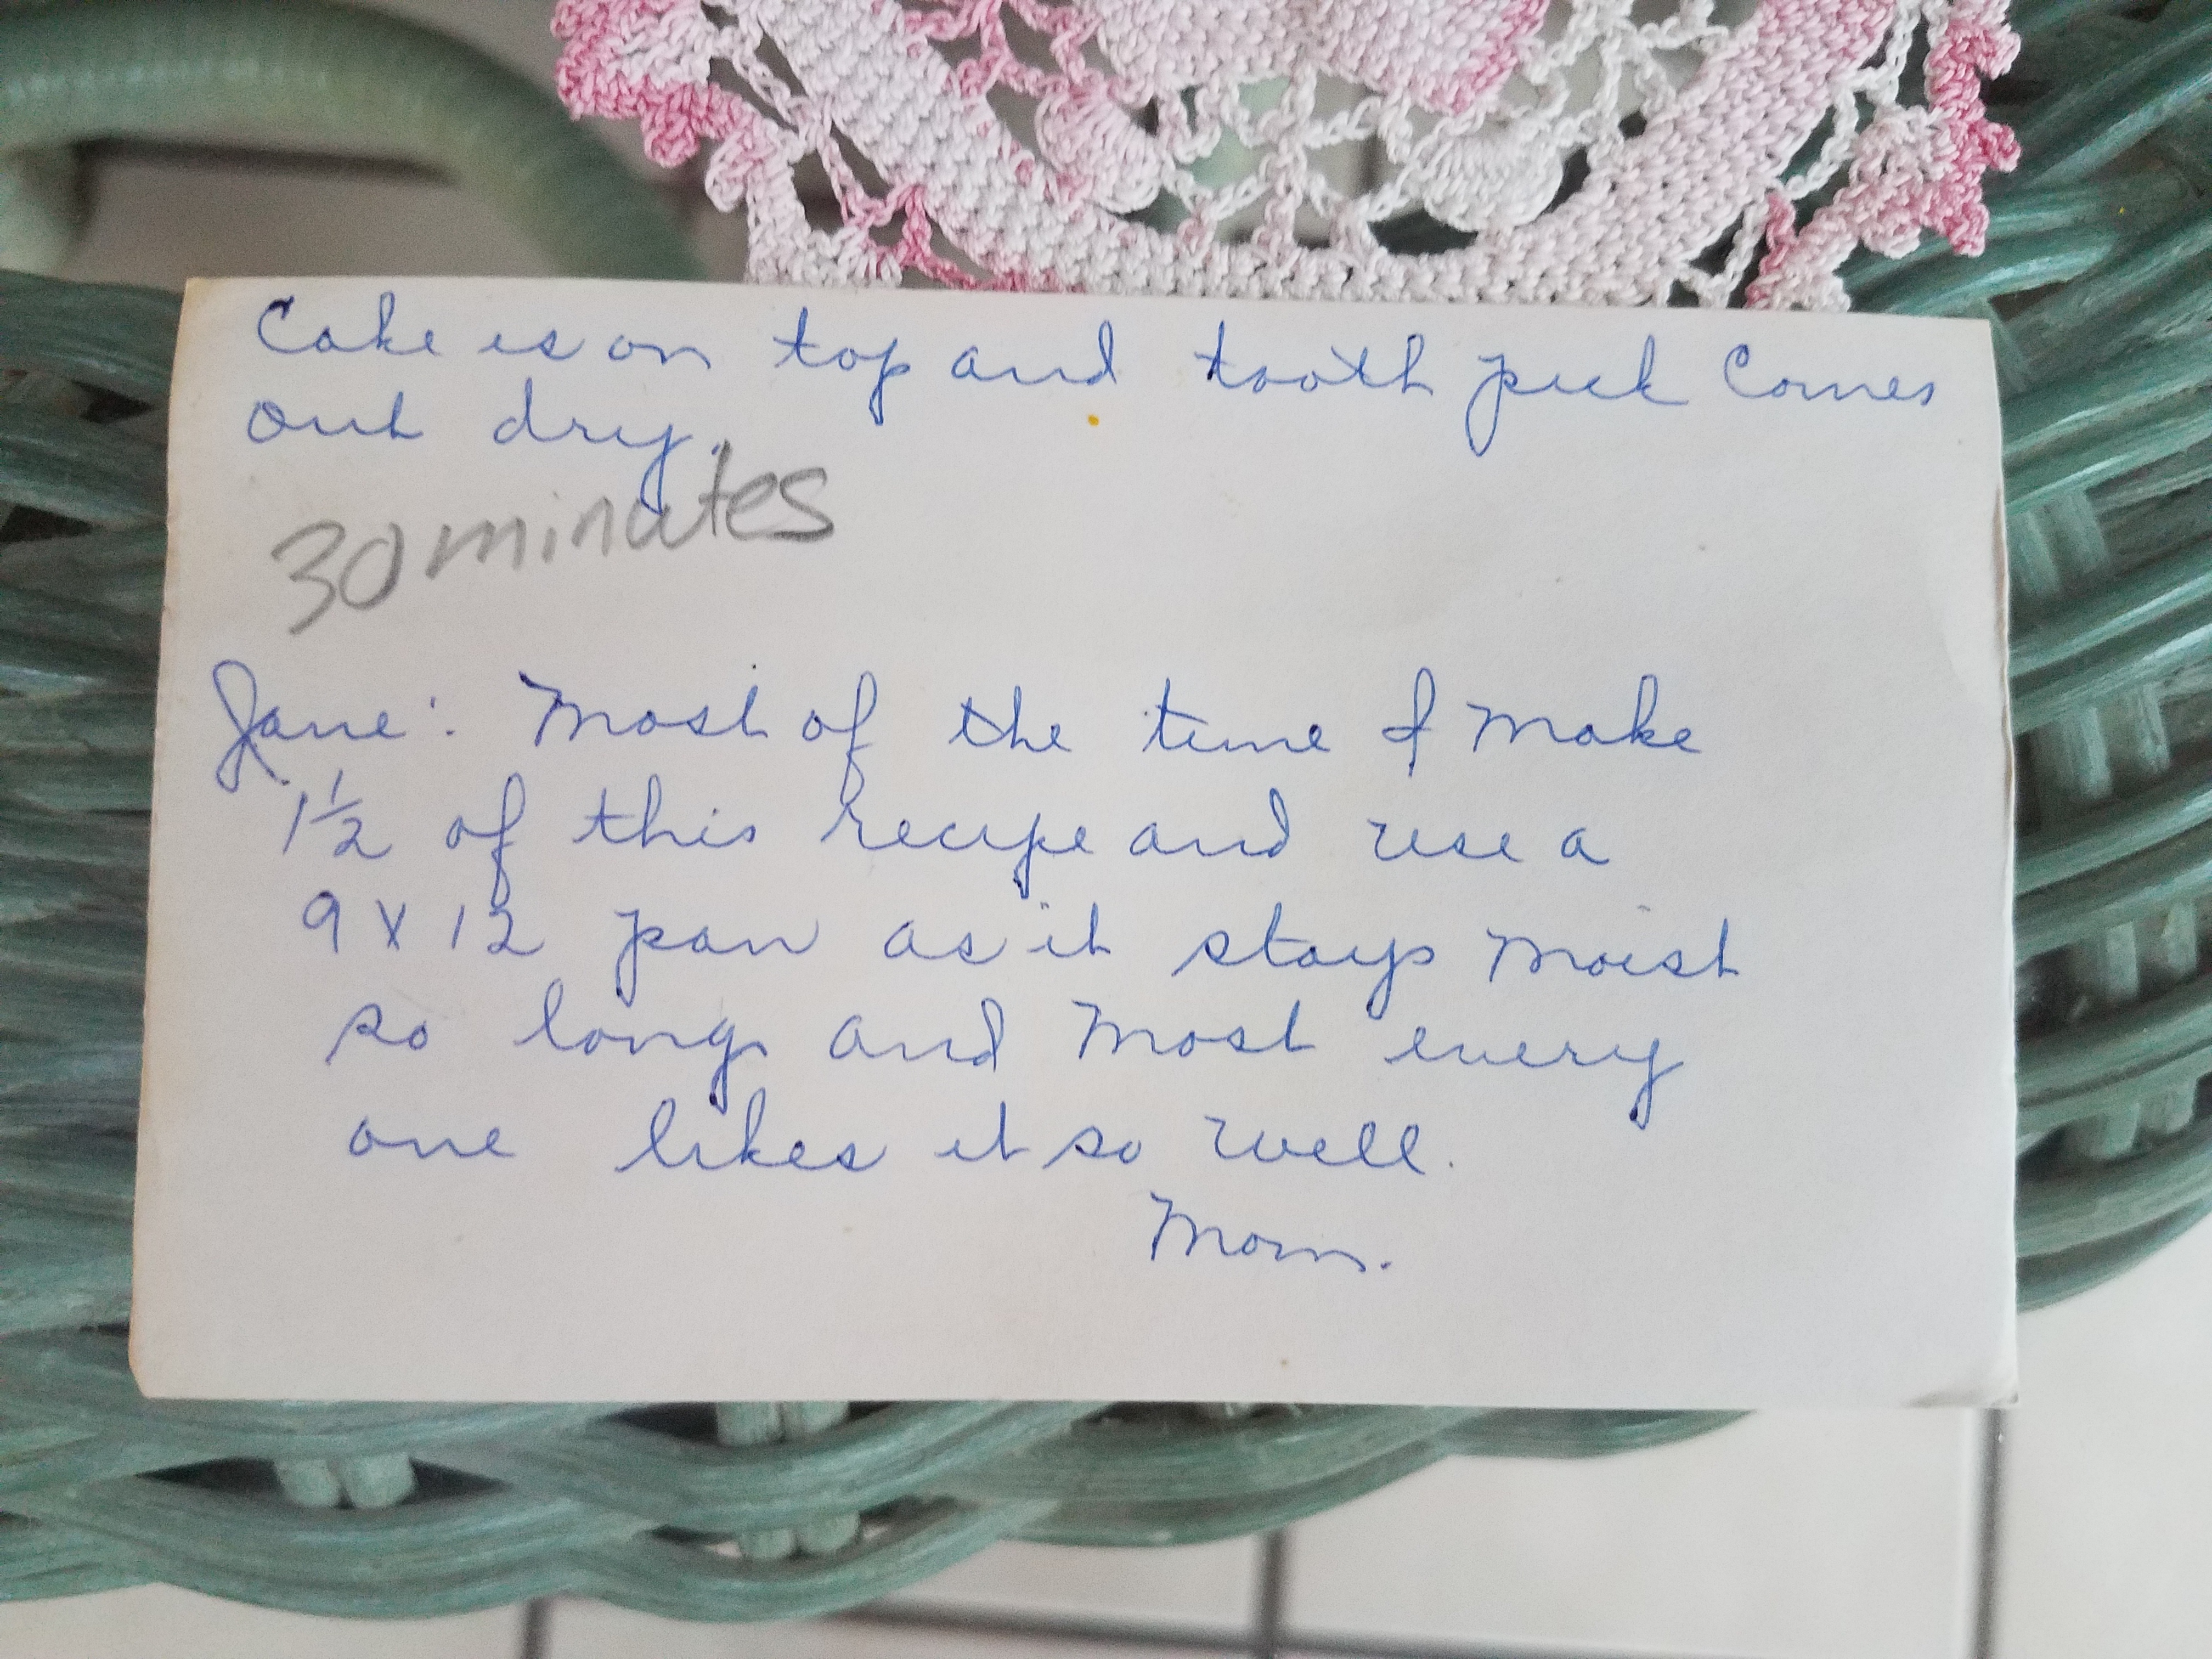 Cake is on top and tooth pick Comes
out dry.
30 minutes
Jane: Most of the time I make
1½ of this recipe and use a
9 X 12 pan as it stays moist
so long and most every
one likes it so well.
Mom.